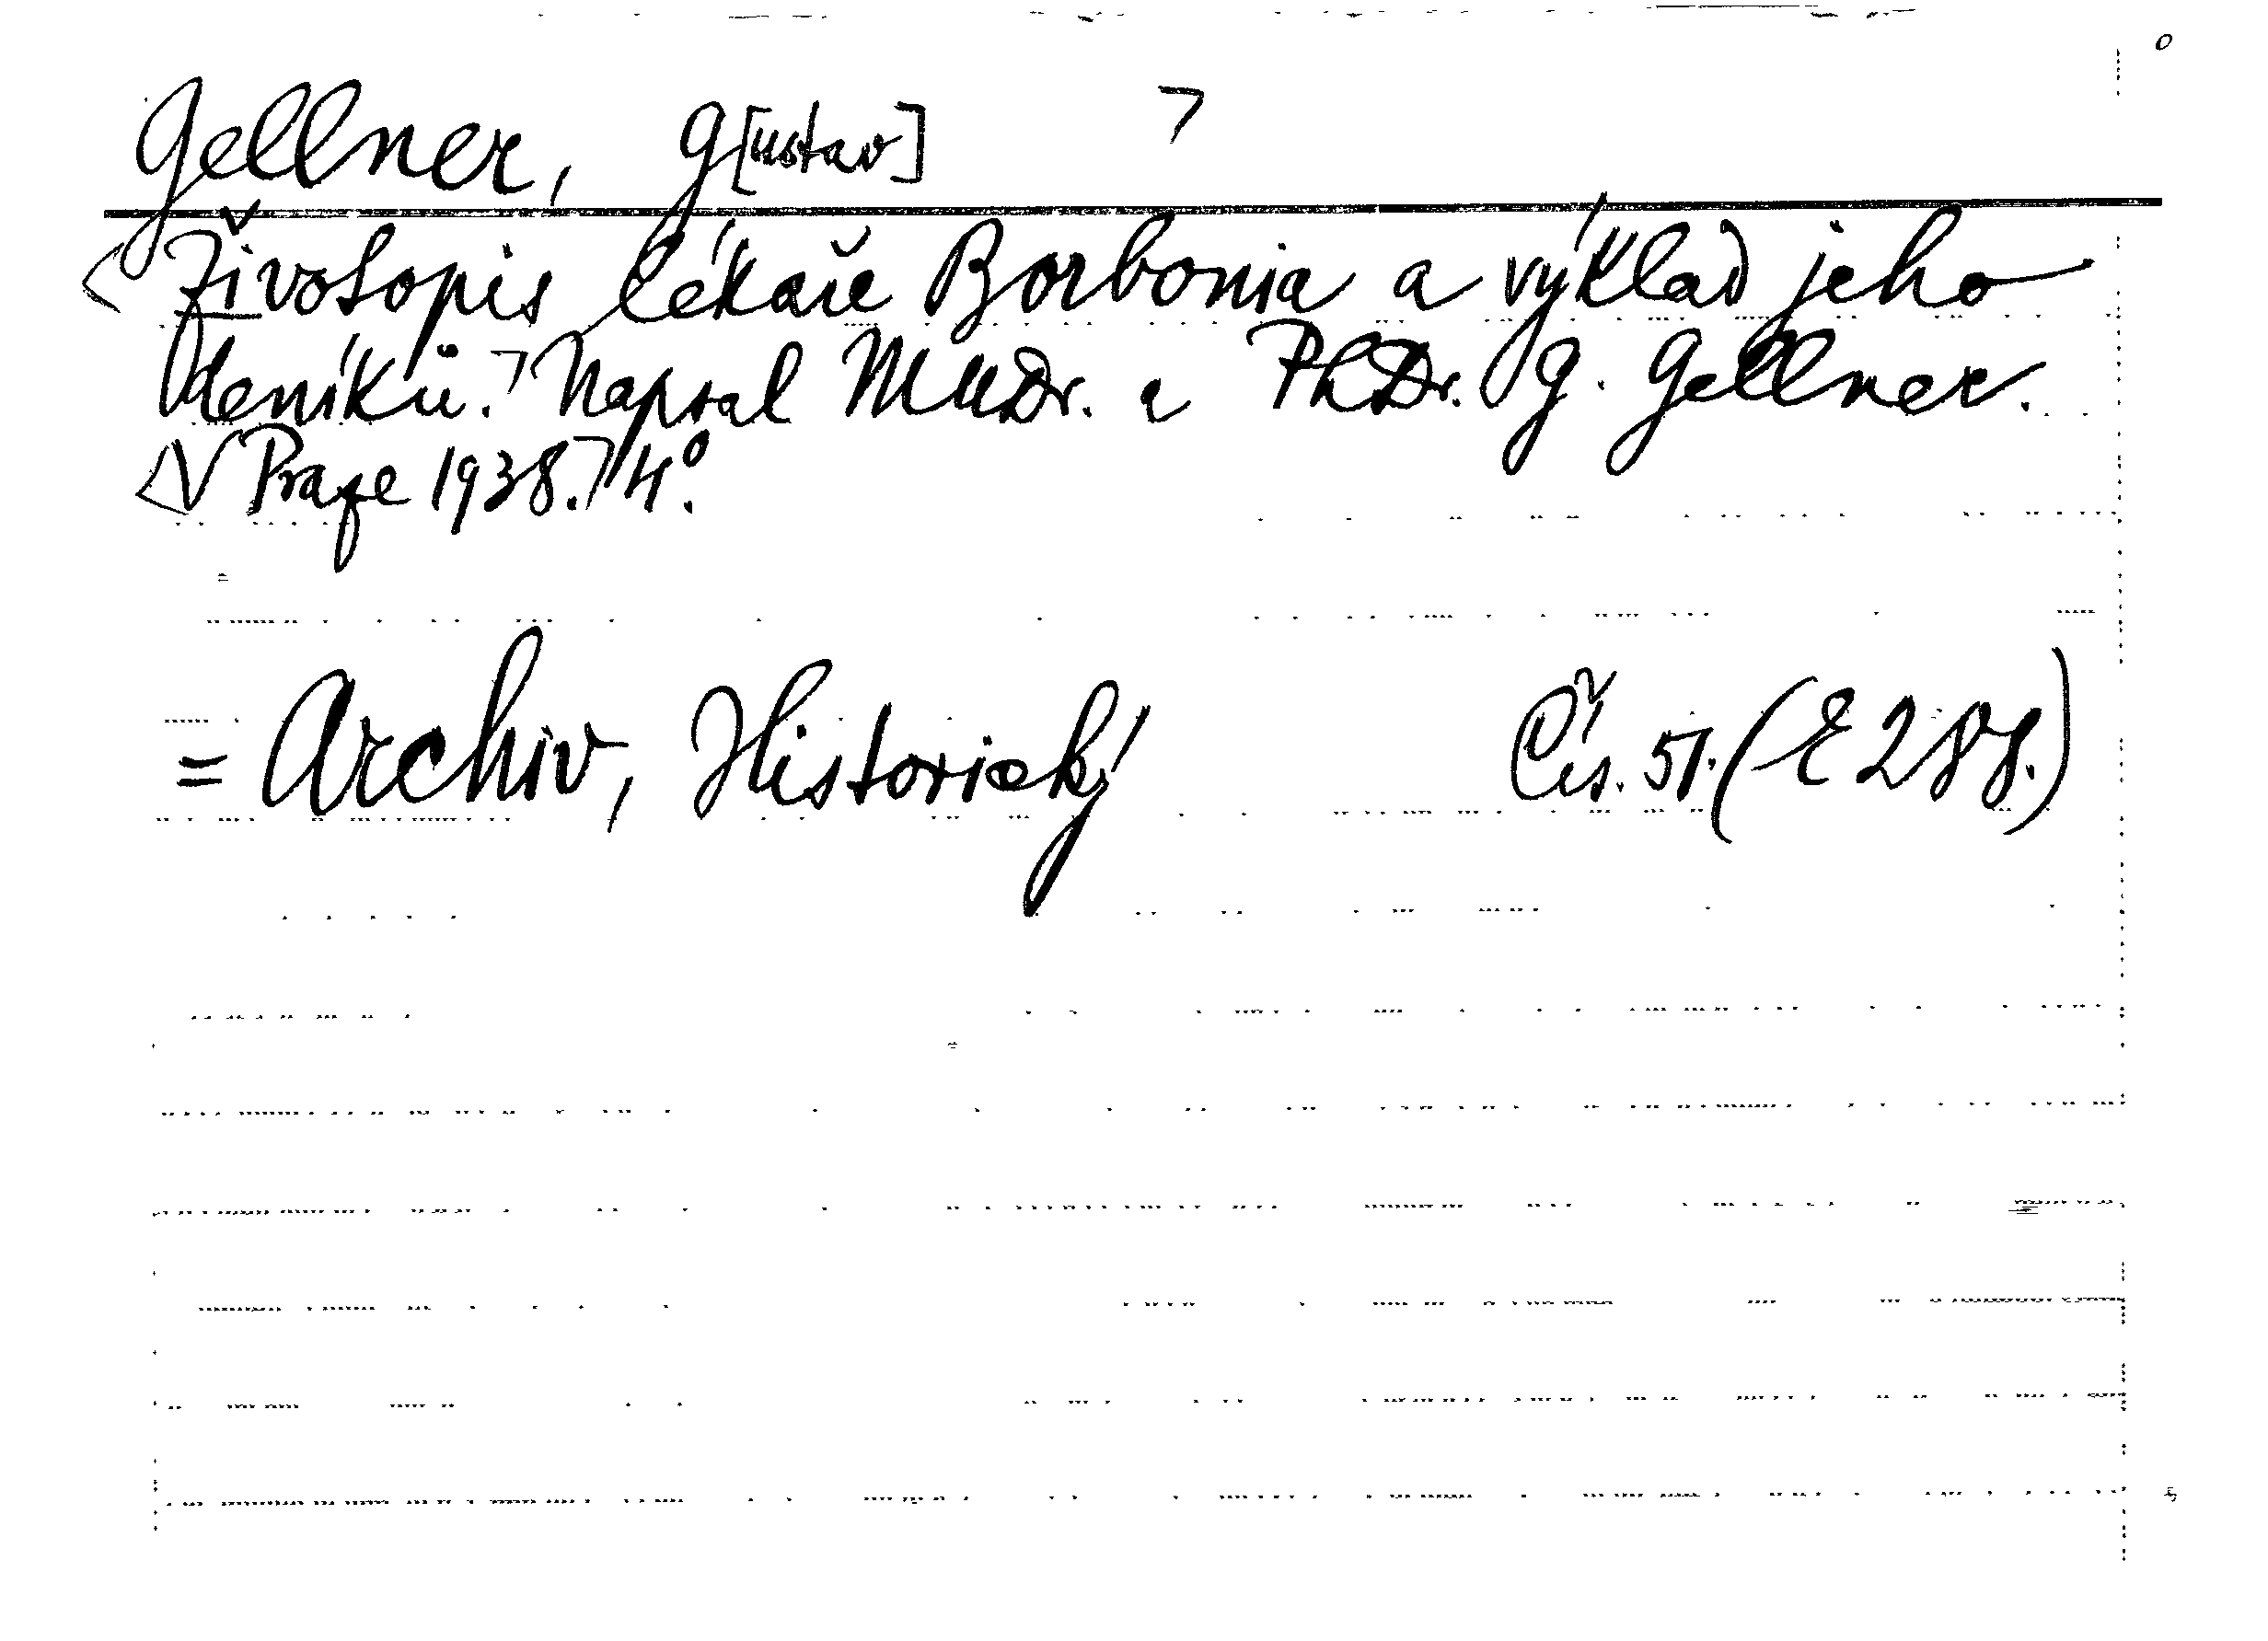 Gellner, G[ustav]
Životopis lékaře Borbonia a výklad jeho
deníků. Napsal MUDr. a PhDr. G. Gellner.
V Praze 1938. 4°.
= Archiv, Historický Čís. 51. (E 288.)